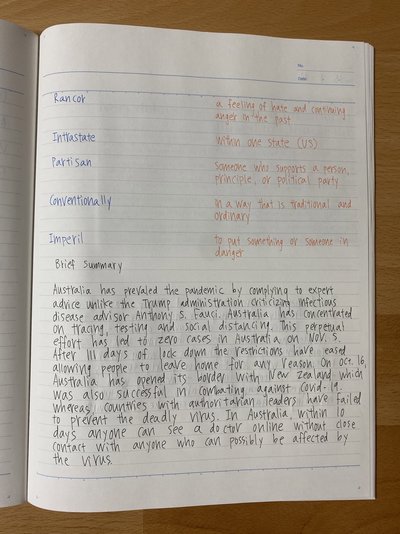 No.
Date
Rancor
a feeling of hate and continuing
anger in the past
Intrastate
within one state (US)
Partisan
someone who supports a person,
principle, or political party
Conventionally
in a way that is traditional and
ordinary
Imperil
to put something or someone in
danger
Brief Summary
Australia has prevaled the pandemic by complying to expert
advice unlike the Trump administration criticizing infectious
disease advisor Anthony S. Fauci. Australia has concentrated
on tracing, testing and social distancing. This perpetual
effort has led to zero cases in Australia on Nov. 5.
After 111 days of lock down the restrictions have eased
allowing people to leave home for any reason. On Oct. 16,
Australia has opened its border with New Zealand which
was also successful in combating against Covid-19.
whereas, countries with authoritarian leaders have failed
to prevent the deadly virus. In Australia, within 10
days anyone can see a doctor online without close
contact with anyone who can possibly be affected by
the virus.